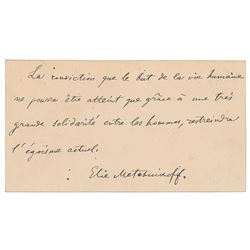 La conviction que le but de la vie humaine
ne pourra être atteint que grâce à une très
grande solidarité entre les hommes, restreindra
l'égoïsme actuel.
: Elie Metchnikoff.